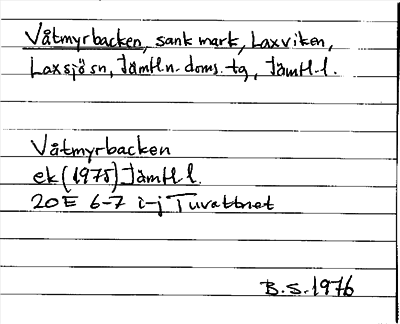 Våtmyrbacken, sank mark, Laxviken,
Laxsjö sn, Jämtl. n. doms. tg, Jämtl. l.
Våtmyrbacken
ek (1975) Jämtl l.
20E 6-7 i-j Tuvattnet
B.S. 1976